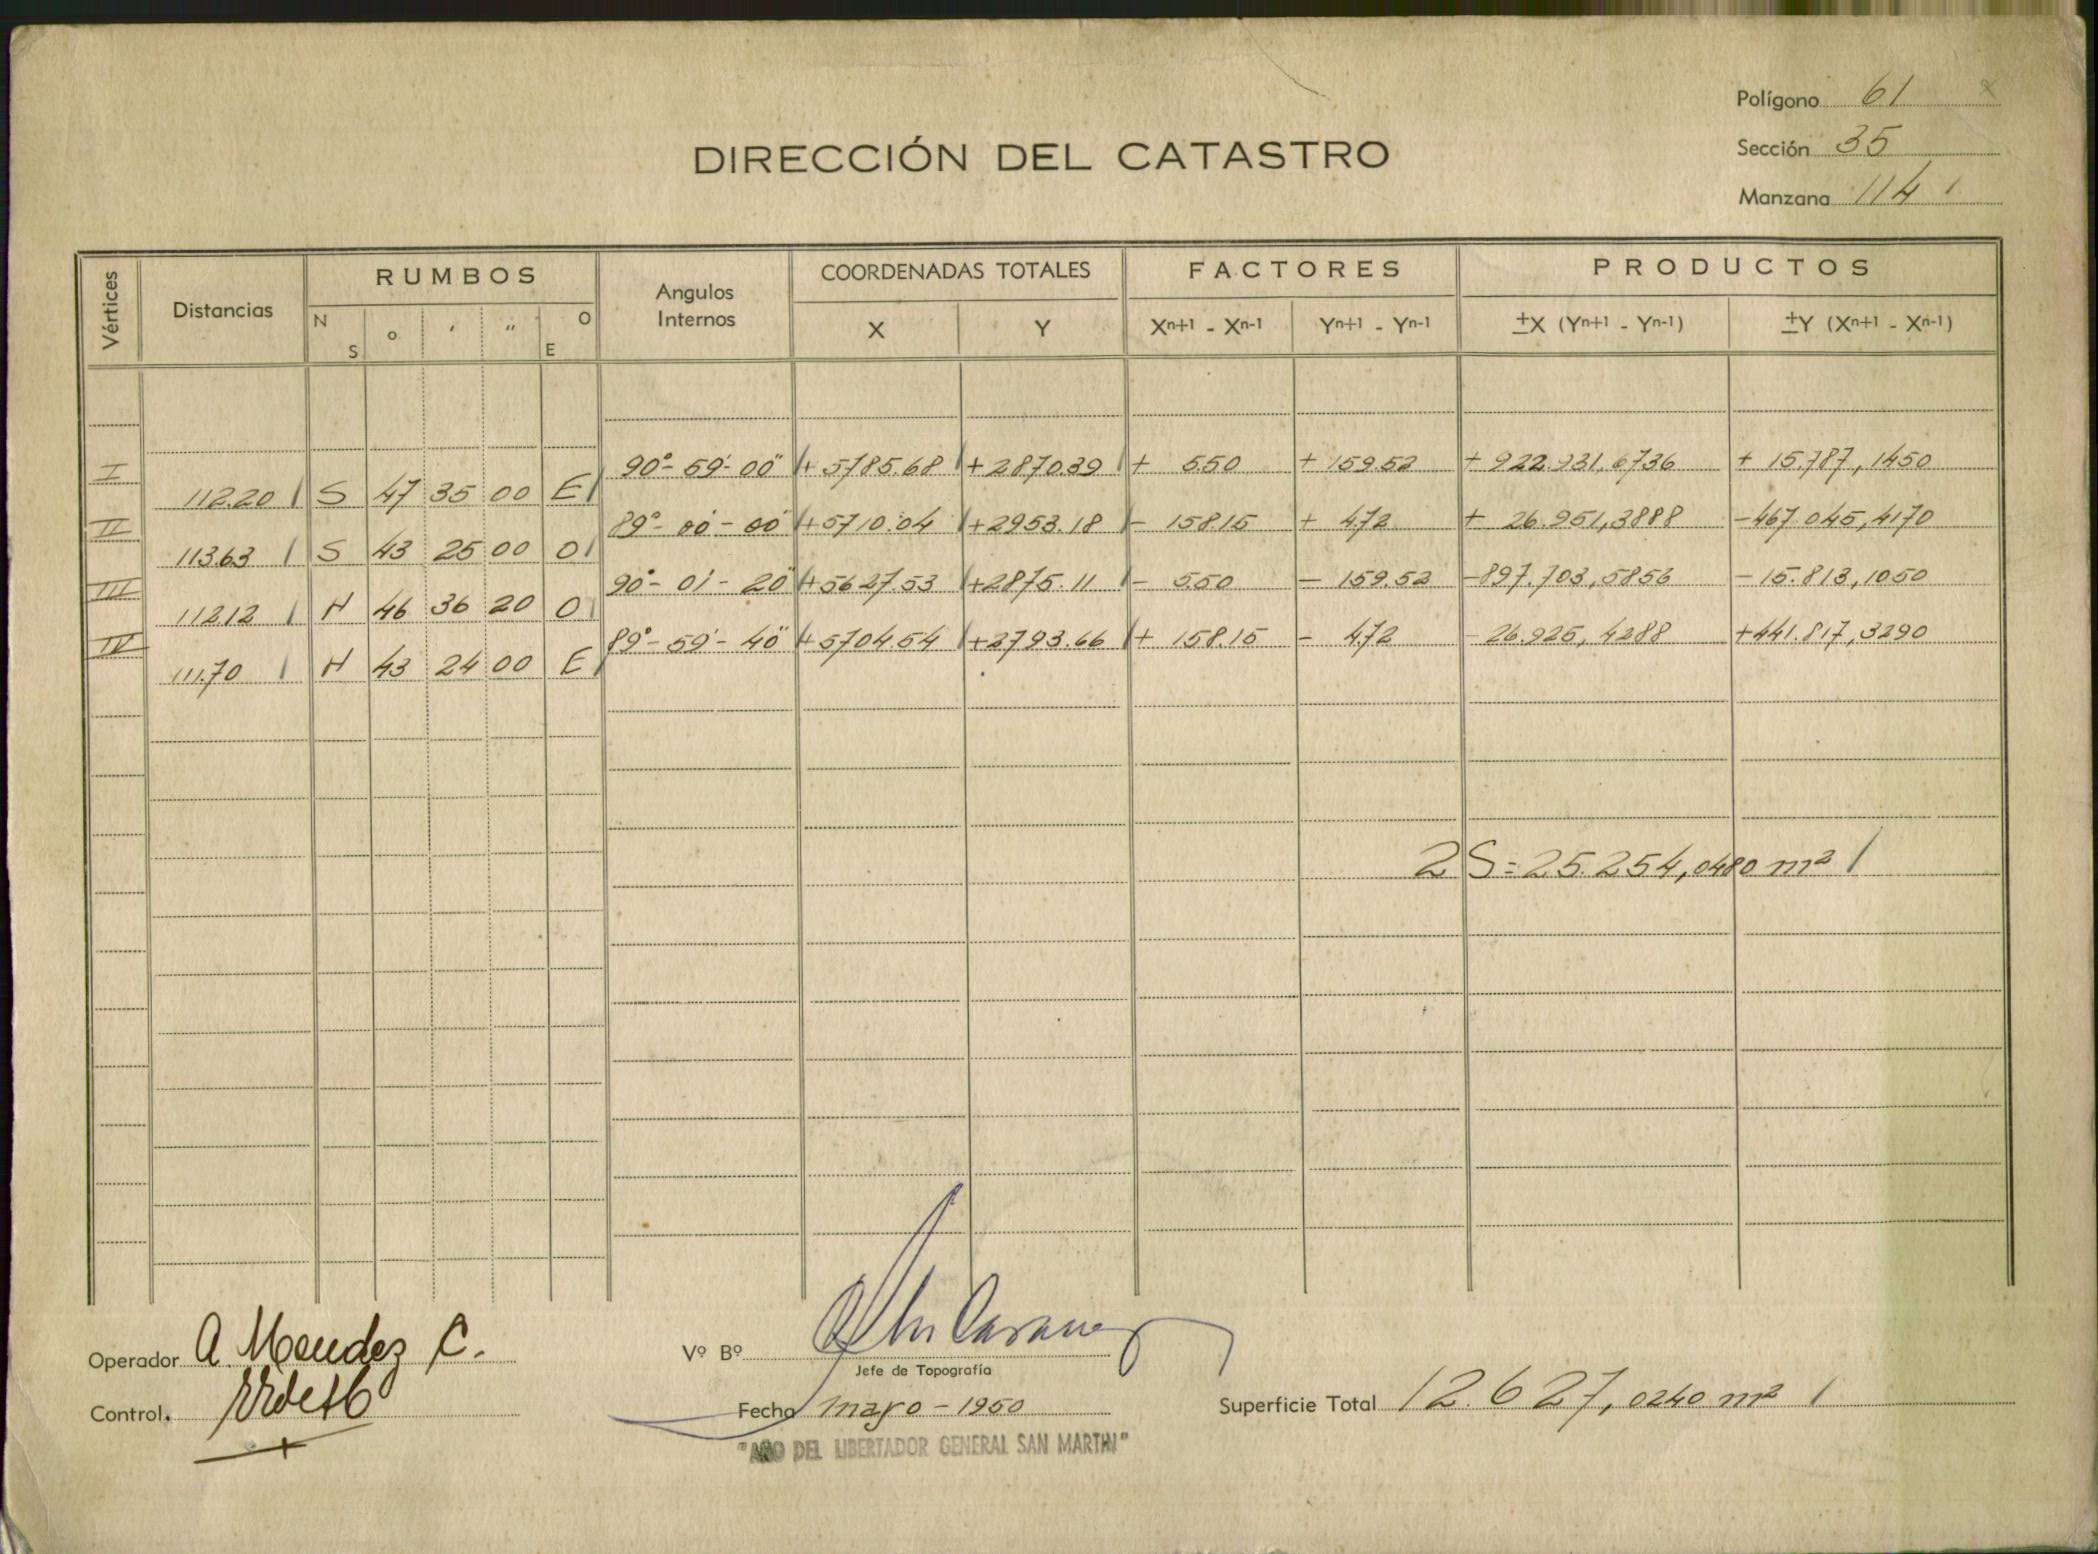 Polígono 61
Sección 35
Manzana 114
DIRECCIÓN DEL CATASTRO
Vértices Distancias RUMBOS Angulos Internos COORDENADAS TOTALES FACTORES PRODUCTOS
N S ° ' " O E X Y Xn+1 - Xn-1 Yn+1 - Yn-1 ±X (Yn+1 - Yn-1) ±Y (Xn+1 - Xn-1)
I 90°-59'-00" +5785.68 +2870.39 + 5.50 + 159.52 + 922.931,6736 + 15.787,1450
112.20 S 47 35 00 E
II 89°-00'-00' +5710.04 +2953.18 - 158.15 + 4.72 + 26.951,3888 -467.045,4170
113.63 S 43 25 00 O
III 90°-01'-20" +5627.53 +2875.11 - 5.50 - 159.52 -897.703,5856 -15.813,1050
112.12 N 46 36 20 O
IV 89°-59'-40" +5704.54 +2793.66 + 158.15 - 4.72 -26.925,4288 +441.817,3290
111.70 N 43 24 00 E
2S=25.254,0480 m²
Operador A. Mendez C.
Vº Bº
Jefe de Topografía
Control.
Fecha mayo-1950
Superficie Total 12.627,0240 m²
"AÑO DEL LIBERTADOR GENERAL SAN MARTIN"